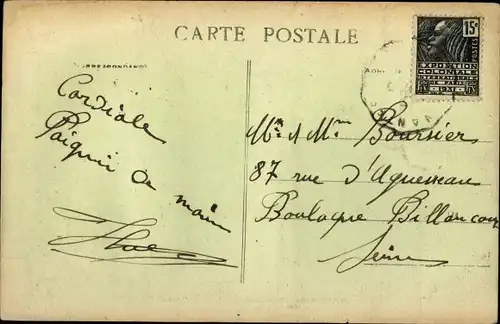 CARTE POSTALE
15c
POSTES
EXPOSITION
COLONIALE
INTERNATIONALE
DE PARIS
1931
Cordiale
Poignée de main
Mr & Mme Boursier
87 rue d'Aguesseau
Boulogne Billancourt
Seine